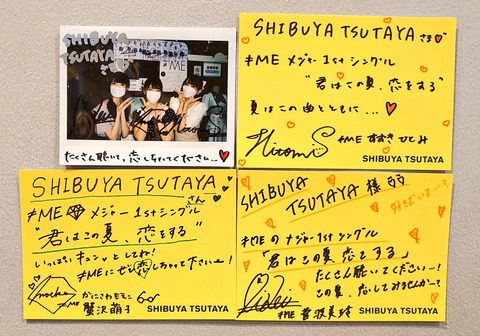 SHIBUYA
TSUTAYA
さま
≠ME
たくさん聴いて、恋しちゃってください…♥
SHIBUYA TSUTAYAさま♡
≠ME メジャー1stシングル
"君はこの夏、恋をする"
夏はこの曲とともに…♡
Hitomi S ≠ME すずき ひとみ
SHIBUYA TSUTAYA
SHIBUYA TSUTAYA
さん
≠ME メジャー1stシングル
"君はこの夏、恋をする"
いっぱいキュンッとしてね!
≠MEにぜひ恋しちゃって下さいー!
≠ME かにさわもえこ
蟹沢萌子
SHIBUYA TSUTAYA
SHIBUYA
TSUTAYA 様
≠MEのメジャー1stシングル
「君はこの夏、恋をする」
たくさん聴いてくださいー!
この夏、恋してみませんかー?
≠ME 菅波美玲
SHIBUYA TSUTAYA